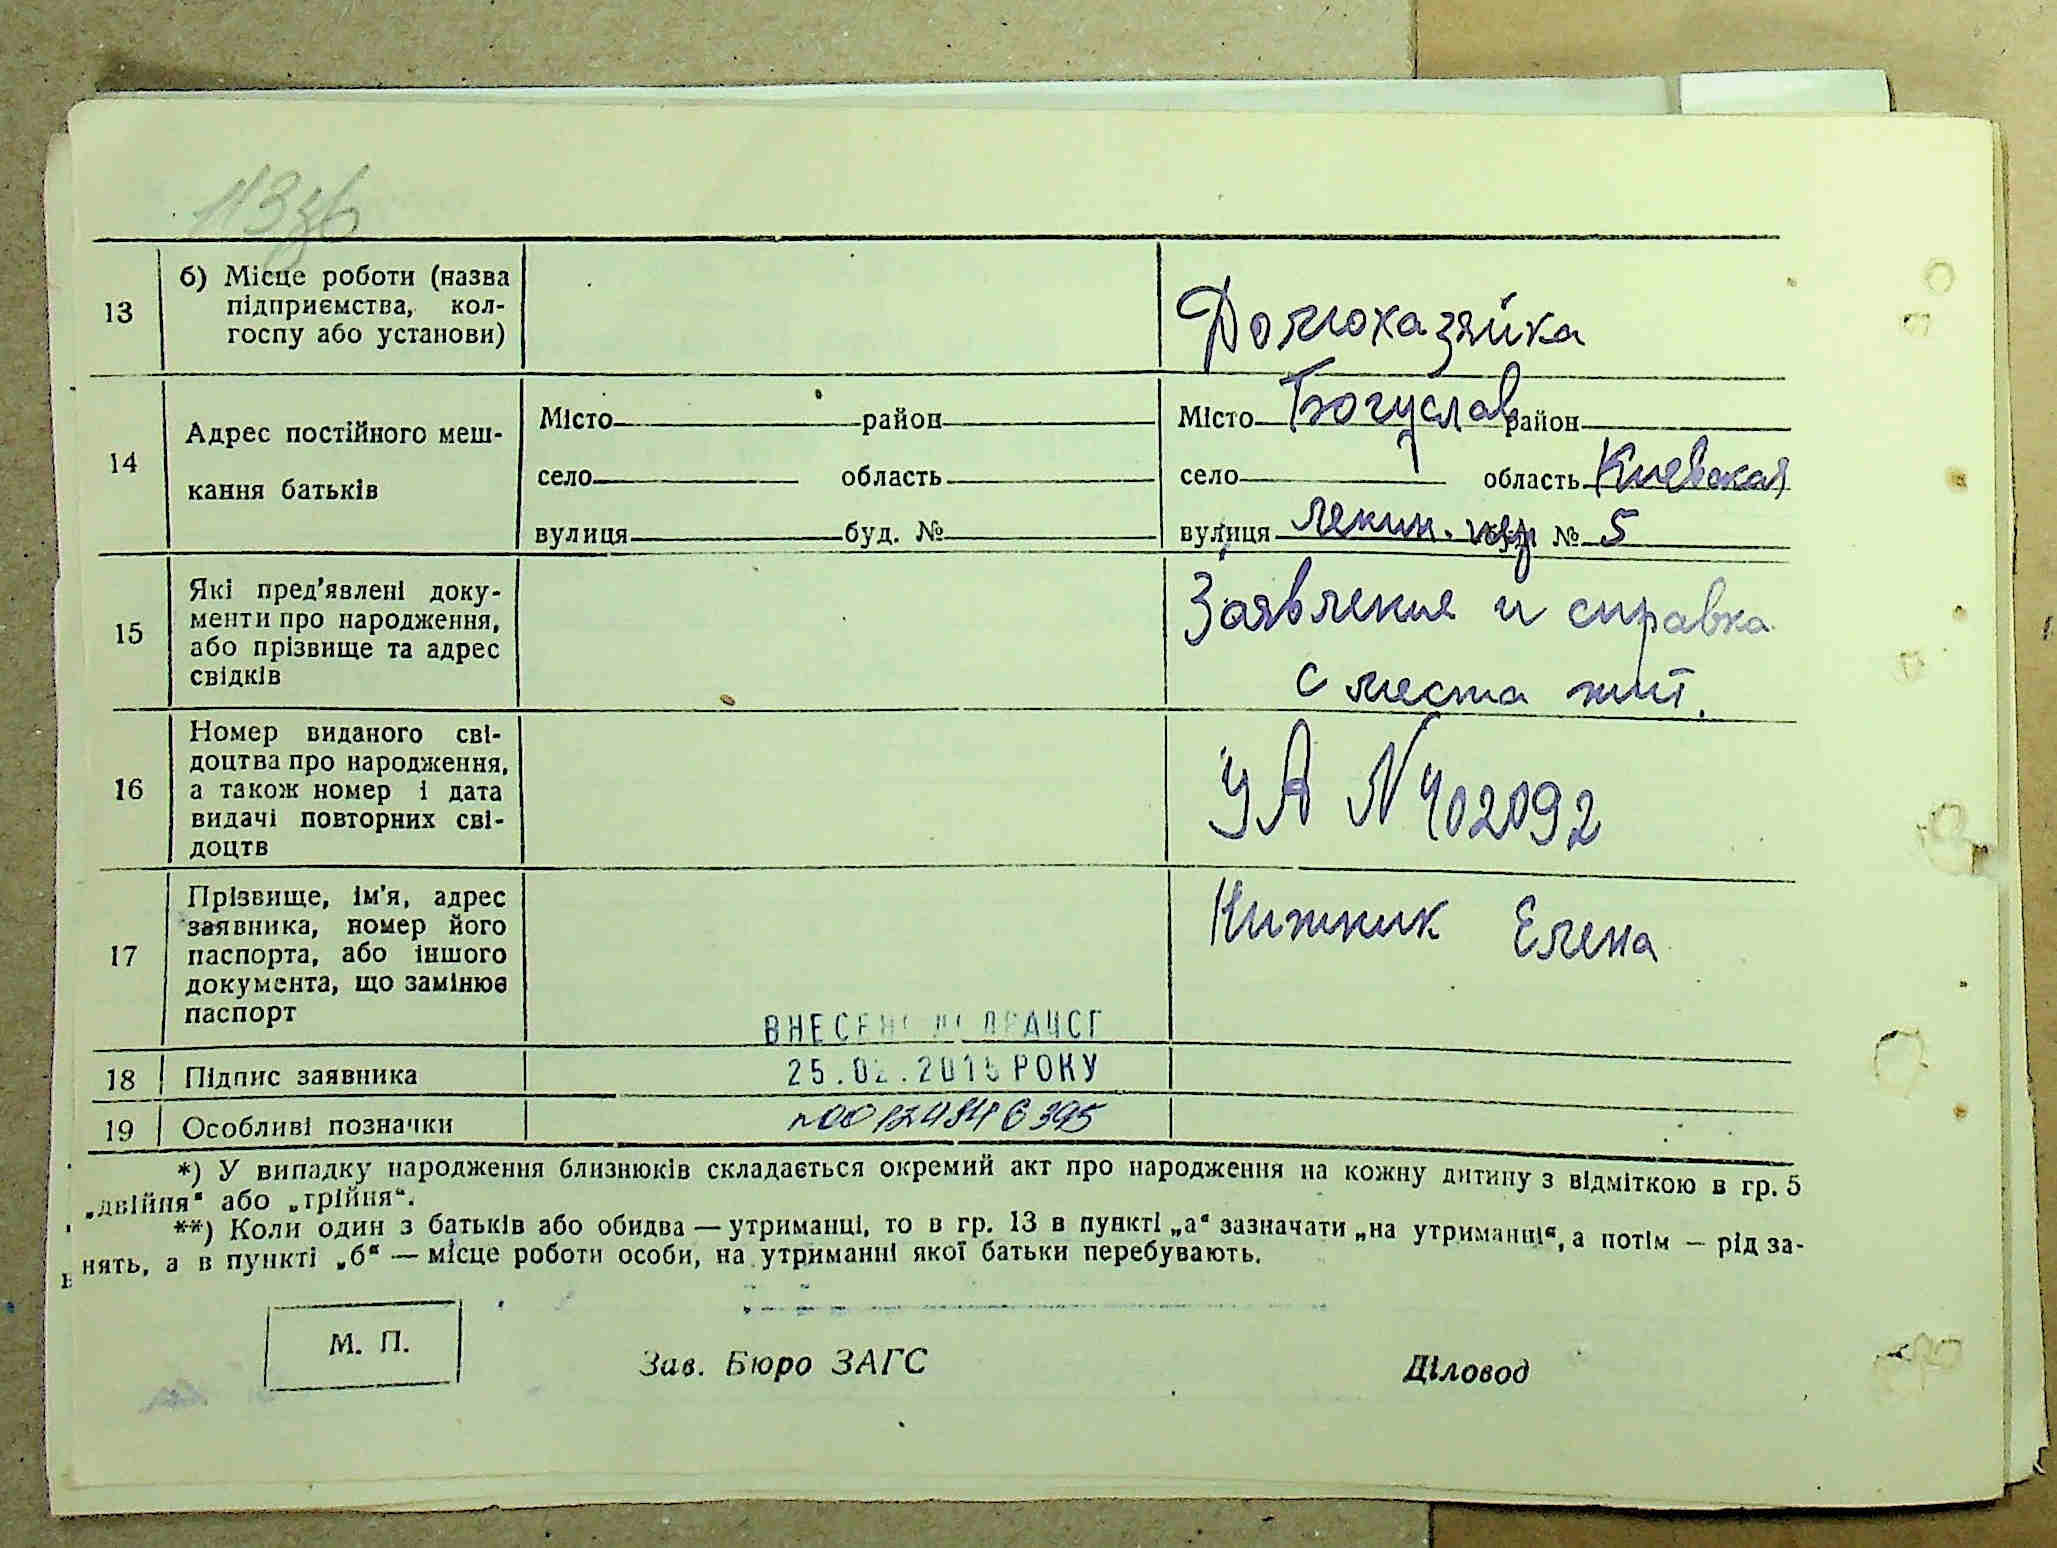 113зв
13
б) Місце роботи (назва
підприємства, кол-
госпу або установи)
Домохазяйка
14
Адрес постійного меш-
кання батьків
Місто район
село область
вулиця буд. №
Місто Богуслав район
село область Киевская
вулиця Ленин. пер № 5
15
Які пред'явлені доку-
менти про народження,
або прізвище та адрес
свідків
Заявление и справка
с места жит.
16
Номер виданого сві-
доцтва про народження,
а також номер і дата
видачі повторних сві-
доцтв
УА N402092
17
Прізвище, ім'я, адрес
заявника, номер його
паспорта, або іншого
документа, що замінює
паспорт
Нижник Елена
ВНЕСЕНО ДО ДРАЦСГ
25.02.2015 РОКУ
18 Підпис заявника
19 Особливі позначки
*) У випадку народження близнюків складається окремий акт про народження на кожну дитину з відміткою в гр. 5
„двійня“ або „трійня“.
**) Коли один з батьків або обидва — утриманці, то в гр. 13 в пункті „а“ зазначати „на утриманні“, а потім — рід за-
нять, а в пункті „б“ — місце роботи особи, на утриманні якої батьки перебувають.
М. П.
Зав. Бюро ЗАГС
Діловод